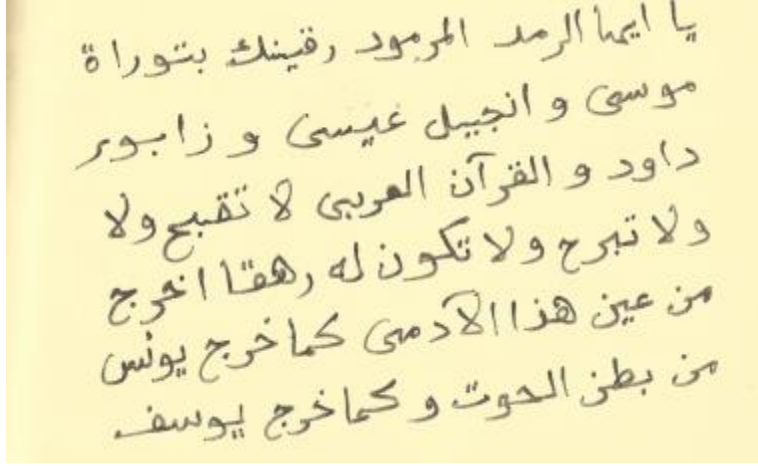 يا ايها الرمد المرمود رقينك بتوراة
موسى و انجيل غيسى و زابور
داود و القرآن العربى لا تقبح ولا
ولا تبرح ولا تكون له رهقا اخرج
من عين هذا الآدمى كما خرج يونس
من بطن الحوت و كما خرج يوسف